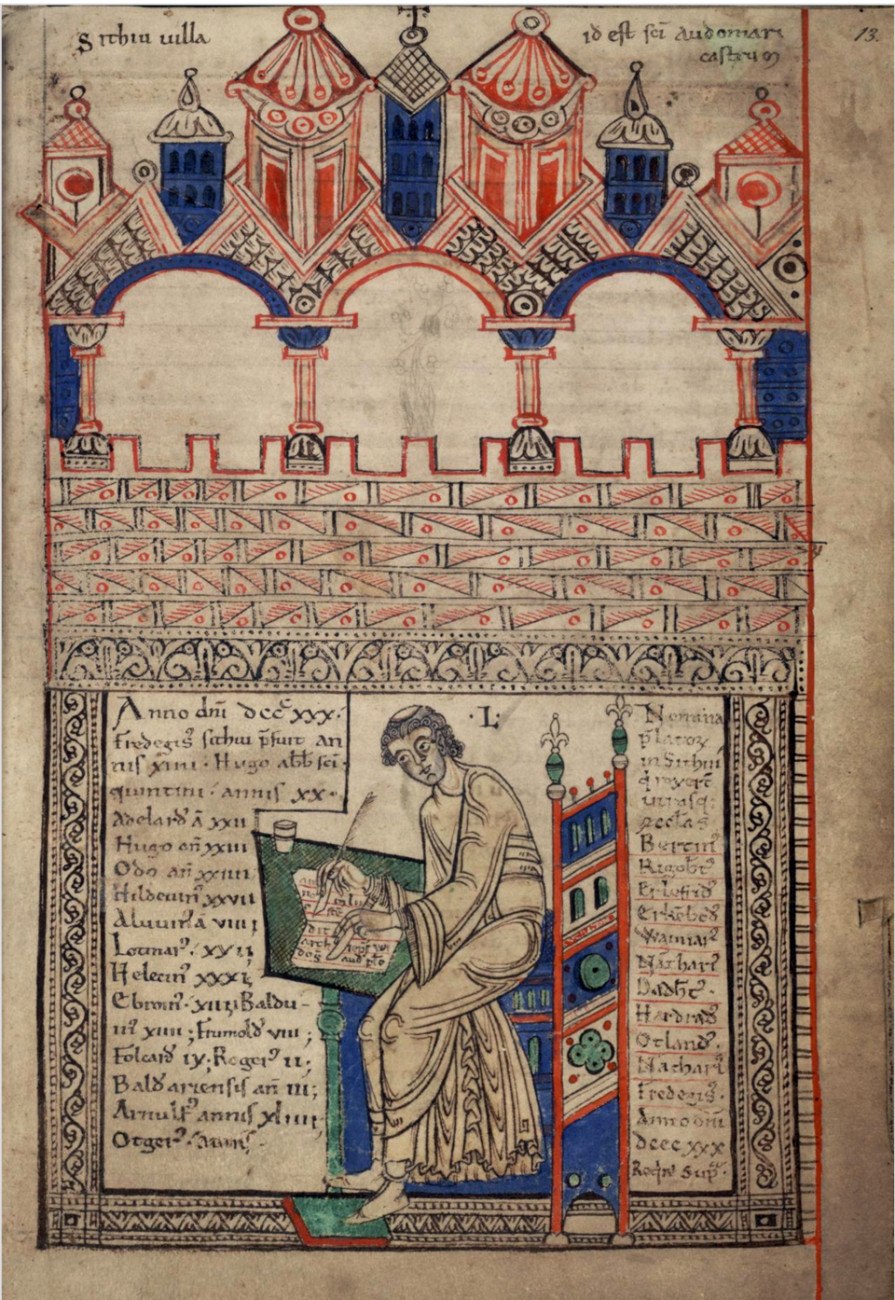 Sithiu uilla
id est sci Audomari
castrum
13.
Anno dni dccc xxx.
Fredegis' sithiu p̄fuit an
nis xiiii. Hugo abb̄ sci
quintini. annis xx.
Adelard' ā xxii
Hugo añ xxiii
Odo añ xxiiii
Hilduin' xxvii
Aluuin' ā viiii
Lotmar'. xxii
Helecin' xxxi
Ebroin'. xiiii; Baldu
in' xiiii; Frumold' viii;
Folcard' ix; Roger' ii;
Bald' ariensis añ iii;
Arnulf' annis xliiii
Otger'. annis
·L·
Nomina
p̄lator̄
in Sithiu
utrasq;
eccl'as
Bertin'
Rigob't'
Erlefrid'
Erkebod'
Waimar'
Nathari'
Dadb't'.
Hardrad'
Otland'.
Nathari'
Fredegis'.
Anno dni
dccc xxx
Reqre sup̄.